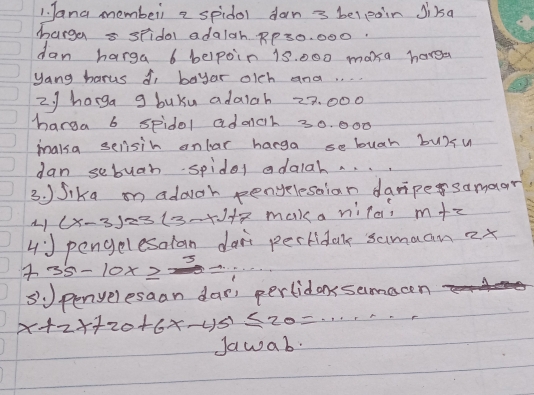 1. Jana membeli 2 spidol dan 3 belpoin Jika
harga 5 spidol adalah Rp 30.000.
dan harga 6 belpoin 18.000 maka harga
yang harus di bayar oleh ana ....
2.) harga 9 buku adalah 27.000
harga 6 spidol adalah 30.000
maka selisih antar harga sebuah buku
dan sebuah spidol adalah ....
3.) Jika m adalah penyelesaian dari persamaan
4(x-3)=3(3-x)+7 maka nilai m+2
4.) pengelesaian dari pertidak samaan 2x
+ 35 - 10x ≥ 3 - ......
5.) penyelesaan dari pertidaksamaan
x+2x+20+6x-45 ≤ 20 = .......
Jawab.